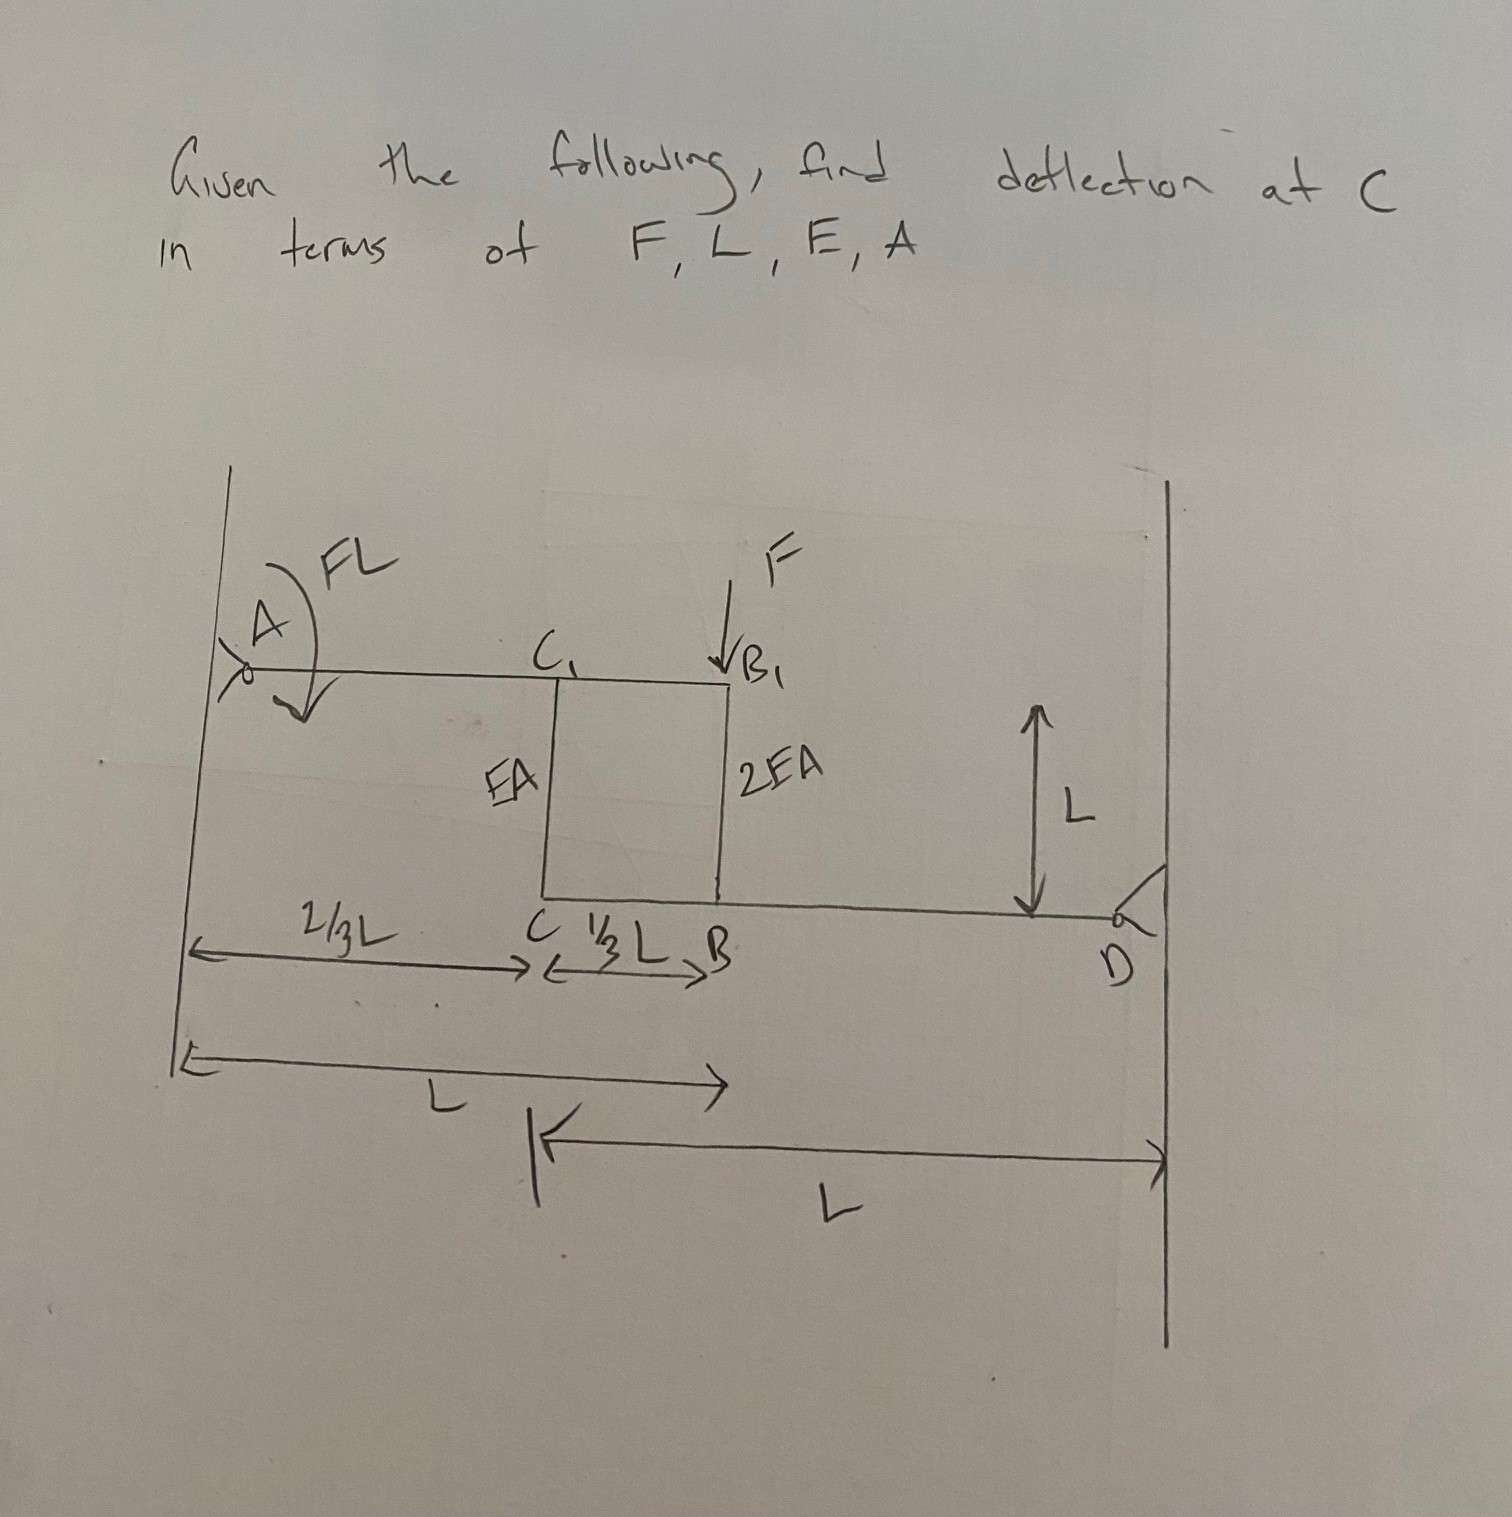 Given the following, find deflection at C
in terms of F, L, E, A
FL
F
A
C₁
B₁
EA
2EA
L
2/3L
C
1/3 L
B
D
L
L